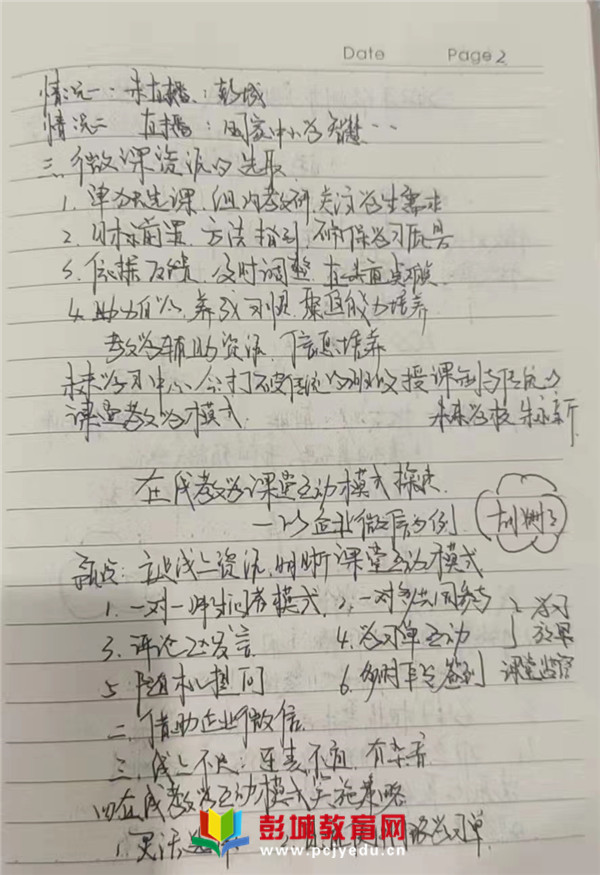 Date Page 2
情况一：未直播：彭城
情况二 直播：国家中小学智慧…
三、微课资源的选取
1. 课 组内教研 关注学生需求
2. 目标前置 方法指引 确保学习质量
3. 依据反馈 及时调整 直点难
4. 助力 养成习惯 聚 能力培养
教学辅助资源 信息培养
未来学习中心，会打破 授课制与传统的
课堂教学模式 未来学校 朱永新
在线教学课堂互动模式探
—以企业微信为例
一 线上资源，明晰课堂互动模式
1. 一对一师生问答模式 2. 一对多共同参与 学习
3. 评论区发言 4. 学习单互动 效果
5. 随机提问 6. 多时段签到 课堂监控
二、借助企业微信
三、线上不足：连麦 有杂音
四 在线教学互动模式实施策略
1. 灵活 2. 学习单
彭城教育网
www.pcjyedu.cn